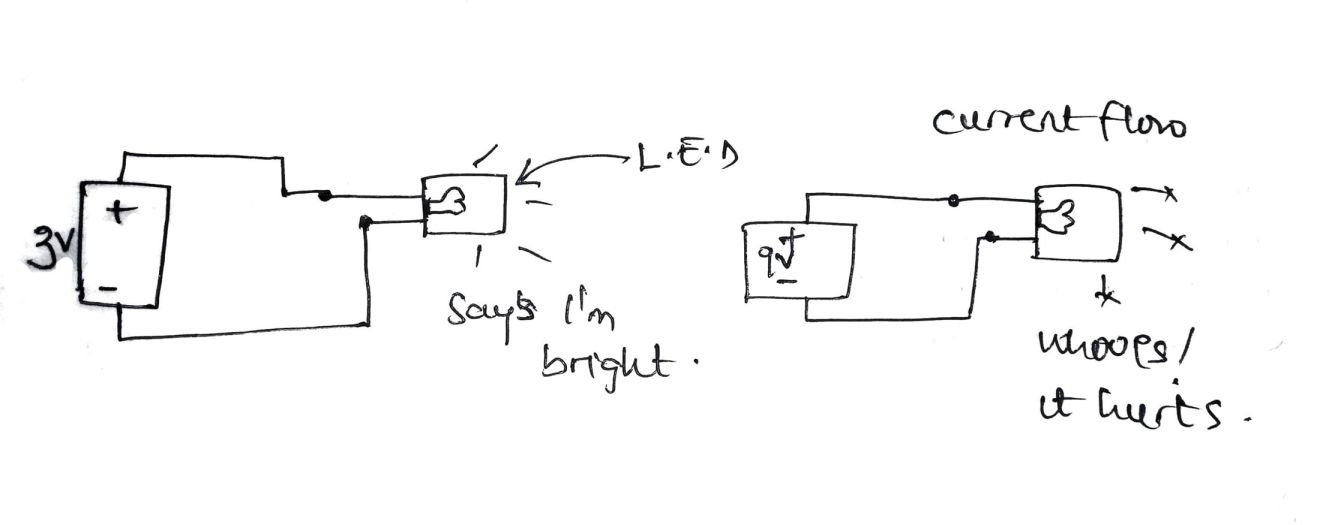 L.E.D
+
3V
-
Says I'm
bright.
current flow
+
9V
-
whoops/
it hurts.